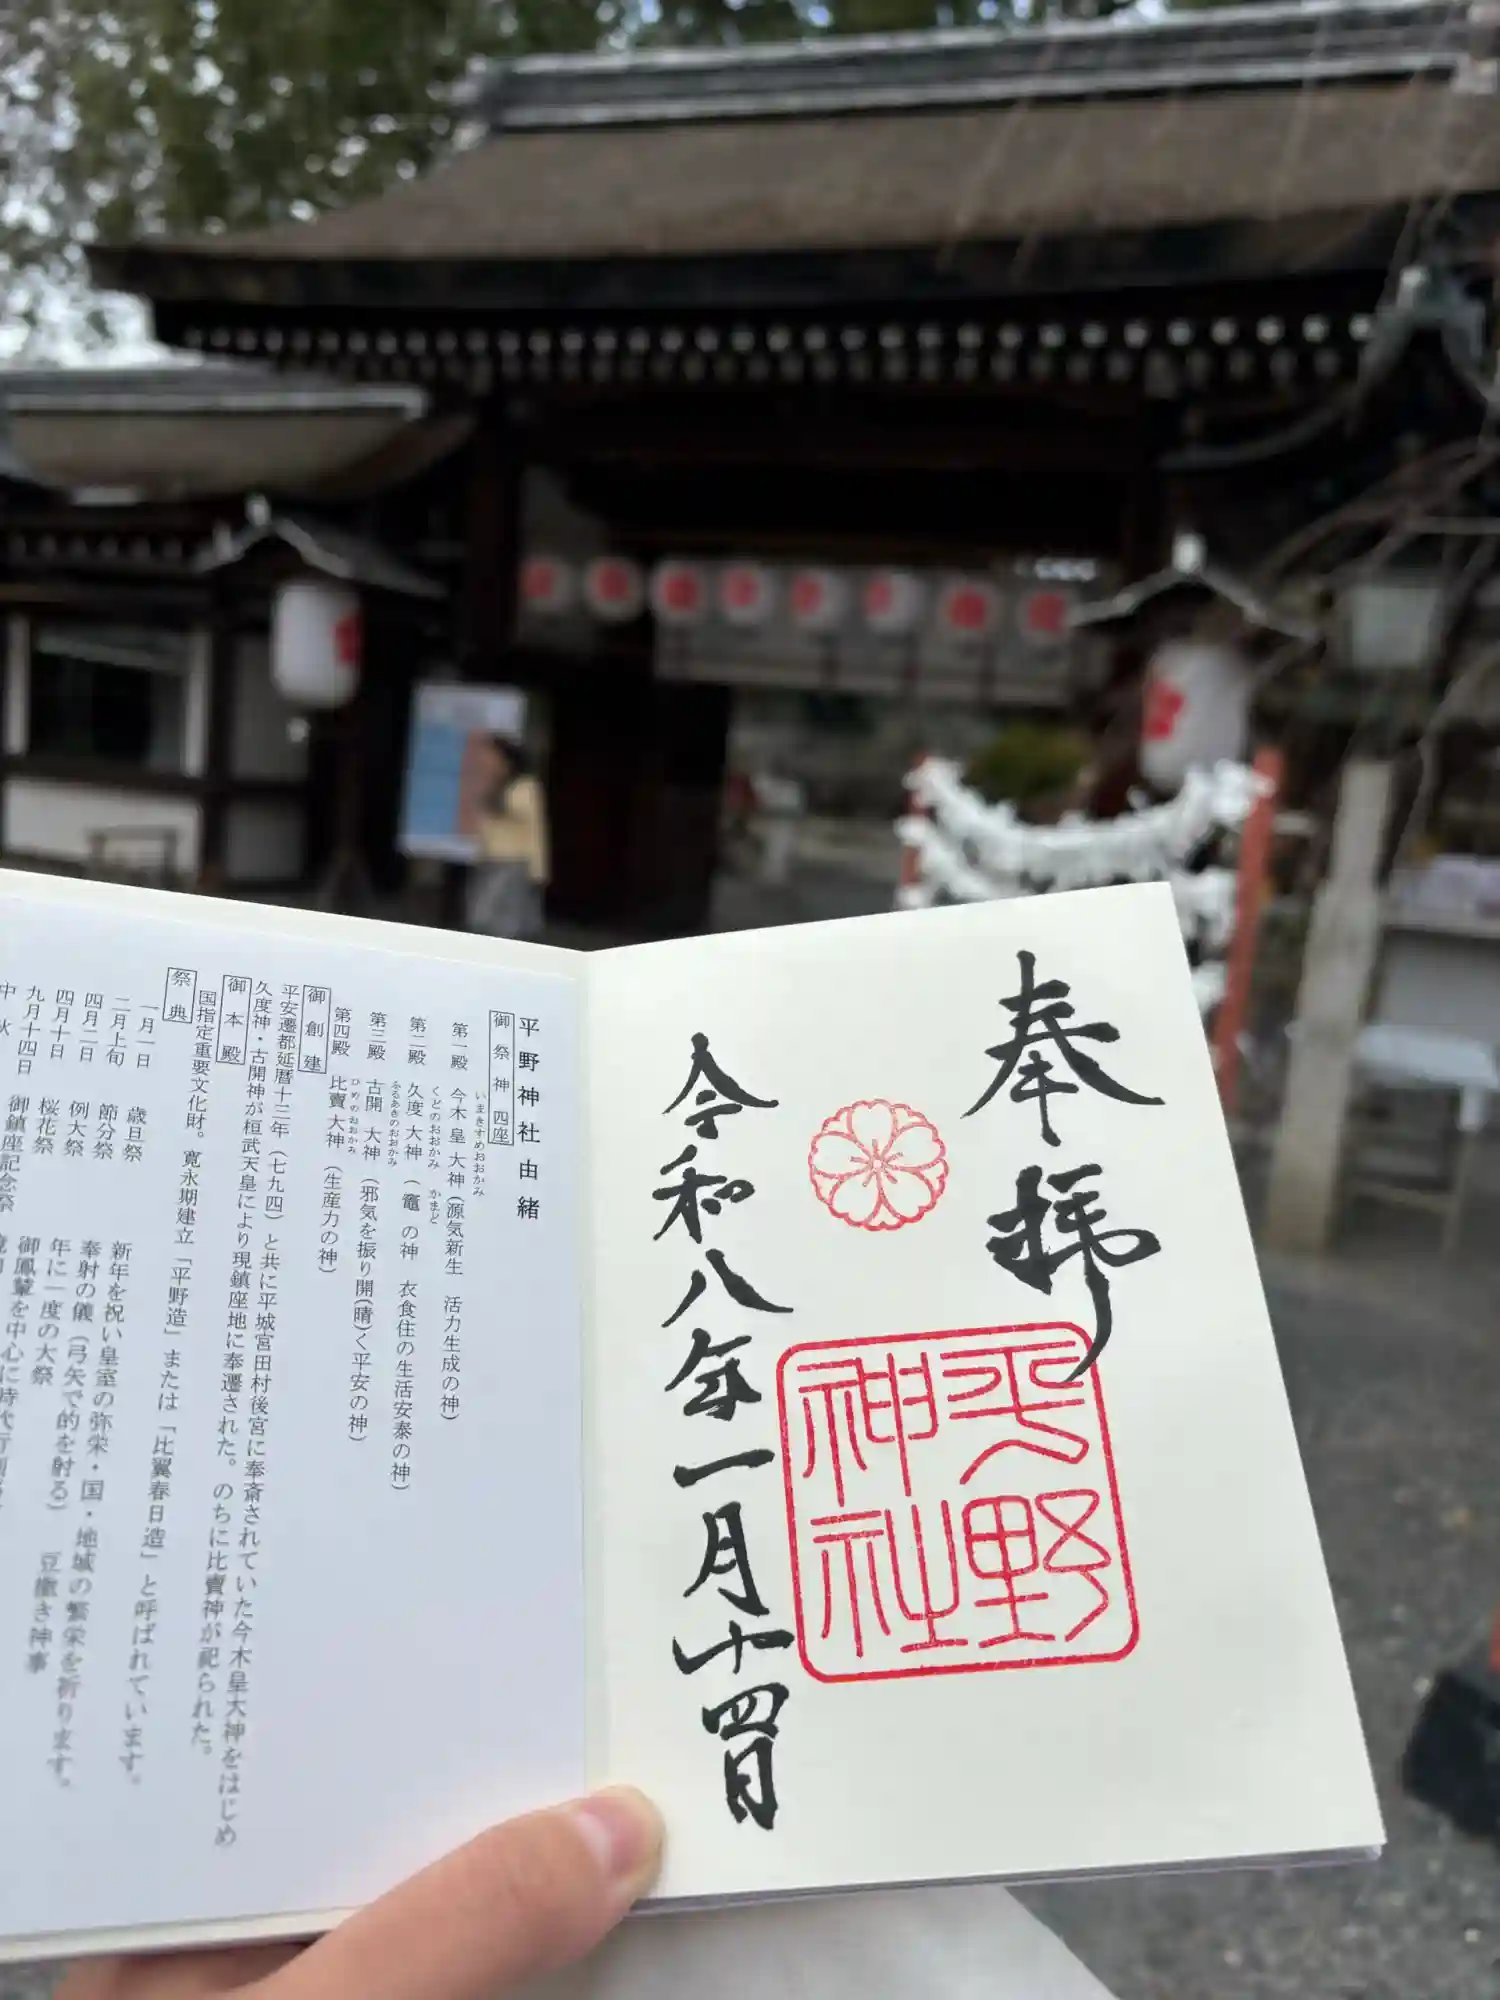 奉拝
平野
神社
令和八年一月十四日
平野神社由緒
御祭神四座
第一殿 今木皇大神(源気新生 活力生成の神)
いまきすめおおかみ
第二殿 久度大神(竈の神 衣食住の生活安泰の神)
くどのおおかみ かまど
第三殿 古開大神(邪気を振り開(晴)く平安の神)
ふるあきのおおかみ
第四殿 比賣大神(生産力の神)
ひめのおおかみ
御創建
平安遷都延暦十三年(七九四)と共に平城宮田村後宮に奉斎されていた今木皇大神をはじめ
久度神・古開神が桓武天皇により現鎮座地に奉遷された。のちに比賣神が祀られた。
御本殿
国指定重要文化財。寛永期建立「平野造」または「比翼春日造」と呼ばれています。
祭典
一月一日 歳旦祭 新年を祝い皇室の弥栄・国・地域の繁栄を祈ります。
二月上旬 節分祭 奉射の儀(弓矢で的を射る) 豆撒き神事
四月二日 例大祭 年に一度の大祭
四月十日 桜花祭 御鳳輦を中心に時代行列
九月十四日 御鎮座記念祭
中秋